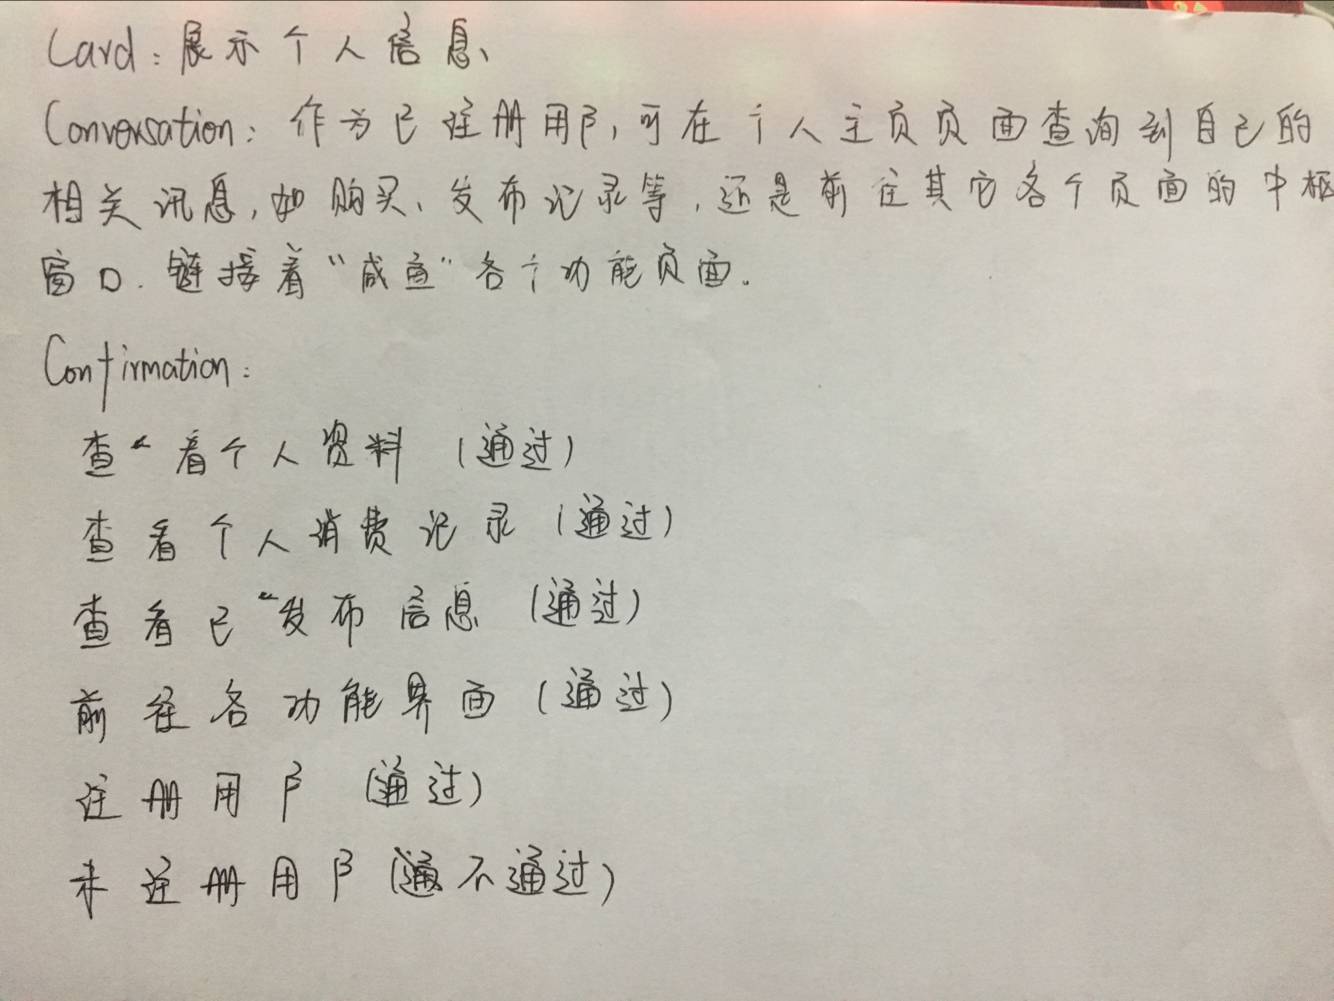 Card：展示个人信息、
Conversation：作为已注册用户，可在个人主页页面查询到自己的
相关讯息，如购买、发布记录等，还是前往其它各个页面的中枢
窗口．链接着“咸鱼”各个功能页面．
Confirmation：
查看个人资料（通过）
查看个人消费记录（通过）
查看已“发布信息（通过）
前往各功能界面（通过）
注册用户（通过）
未注册用户（不通过）